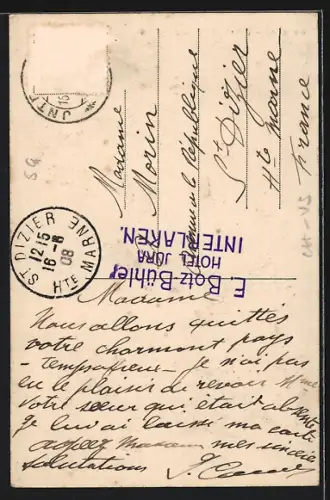 Madame
Morin
de la République
St Dizier
Hte Marne
France
INTE
15
ST DIZIER
12-15
16-8
08
HTE MARNE
E. Botz-Bühler
HOTEL JURA
INTERLAKEN.
CH-VS
Madame
Nous allons quitter
votre charmant pays
je n'ai pas
eu le plaisir de revoir Mme
votre sœur qui était absente
je lui ai laissé ma carte
mes sincères
salutations